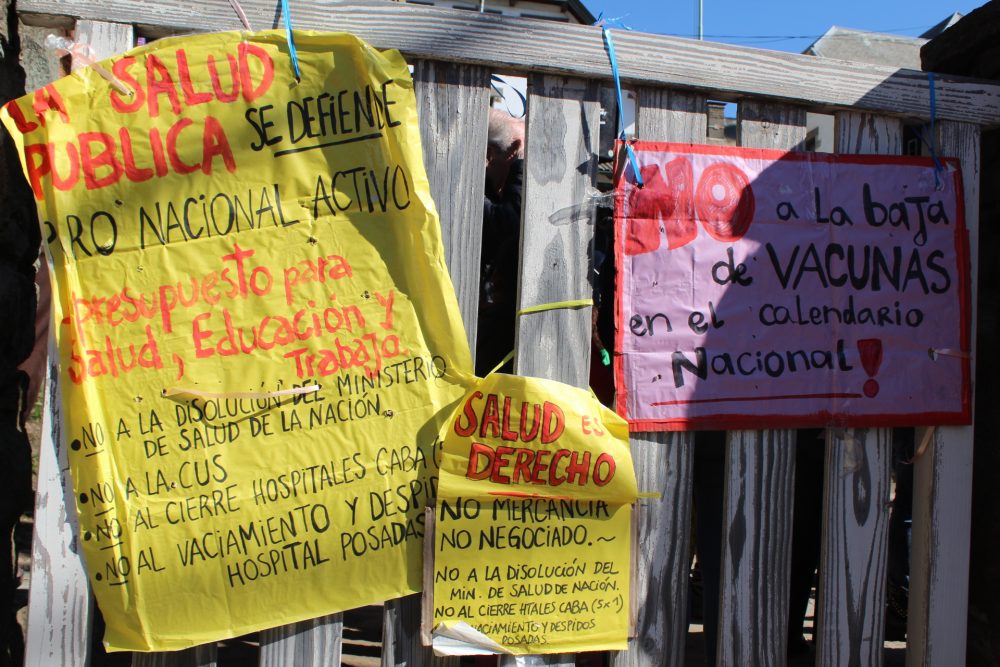 LA SALUD
PUBLICA SE DEFIENDE
PRO NACIONAL ACTIVO
presupuesto para
Salud, Educación y
Trabajo
• NO A LA DISOLUCIÓN DEL MINISTERIO
DE SALUD DE LA NACIÓN.
• NO A LA CUS
• NO AL CIERRE HOSPITALES CABA
• NO AL VACIAMIENTO Y DESPIDOS
HOSPITAL POSADAS
SALUD ES
DERECHO
NO MERCANCIA
NO NEGOCIADO.~
NO A LA DISOLUCIÓN DEL
MIN. DE SALUD DE NACIÓN.
NO AL CIERRE HTALES CABA (5x1)
VACIAMIENTO Y DESPIDOS
POSADAS.
NO a la baja
de VACUNAS
en el calendario
Nacional!